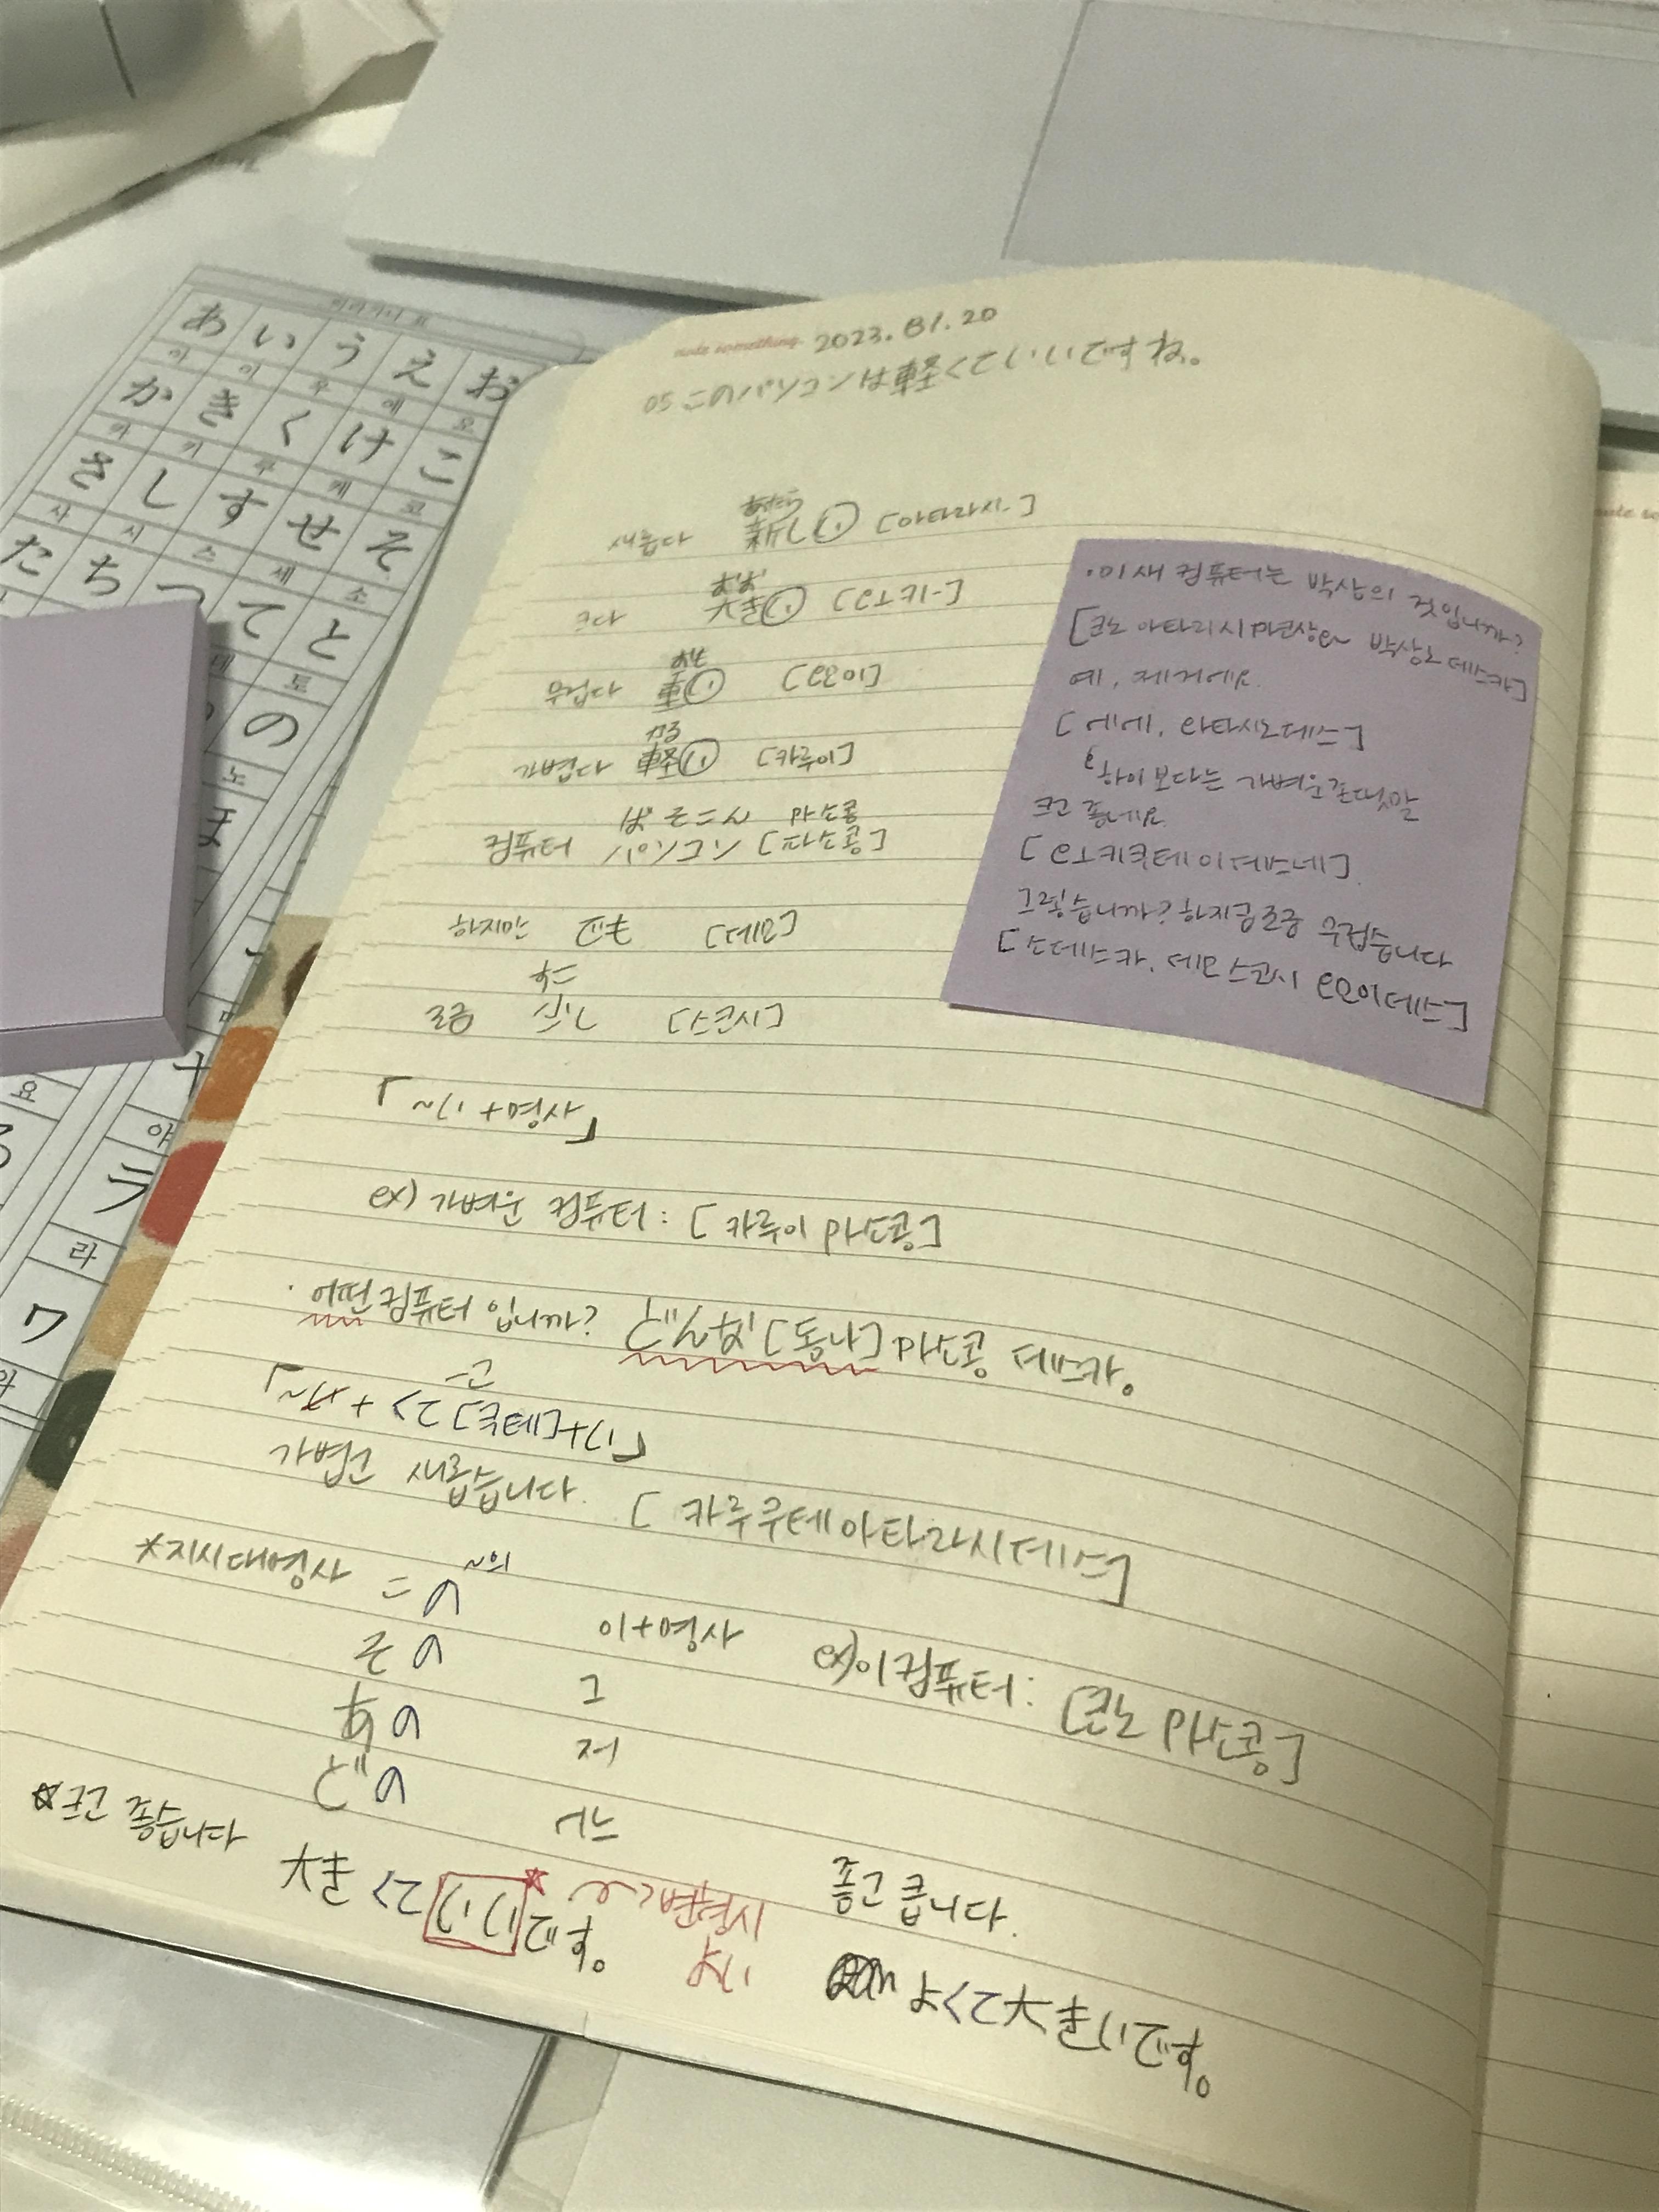 히라가나 표
あ い う え お
아 이 우 에 오
か き く け こ
카 키 쿠 케 코
さ し す せ そ
사 시 스 세 소
た ち つ て と
테 토
の
노
ほ
요
야
ラ
라
ワ
note something 2023.01.20
05 このパソコンは軽くていいですね。
あたら
새롭다 新しい [아타라시-]
おお
크다 大きい [오-키-]
おも
무겁다 重い [오모이]
かる
가볍다 軽い [카루이]
ぱそこん 파소콩
컴퓨터 パソコン [파소콩]
하지만 でも [데모]
すこ
조금 少し [스코시]
「~い+명사」
ex) 가벼운 컴퓨터 : [카루이 파소콩]
· 어떤 컴퓨터 입니까? どんな [동나] 파소콩 데스카。
고
가볍고 새롭습니다. [카루쿠테 아타라시데스]
*지시대명사 この ~의 이+명사 ex)이컴퓨터 : [코노 파소콩]
その 그
あの 저
どの 어느
☆크고 좋습니다 좋고 큽니다.
大きくていいです。 변형시 よくて大きいです。
よい
·이 새 컴퓨터는 박상의 것입니까?
[코노 아타라시 파소콩와 박상노 데스카]
예, 제거에요.
[에에, 와타시노데스]
하이 보다는 가벼운존댓말
크고 좋네요.
[오-키쿠테 이데스네].
그렇습니까? 하지만 조금 무겁습니다
[소데스카. 데모 스코시 오모이데스]